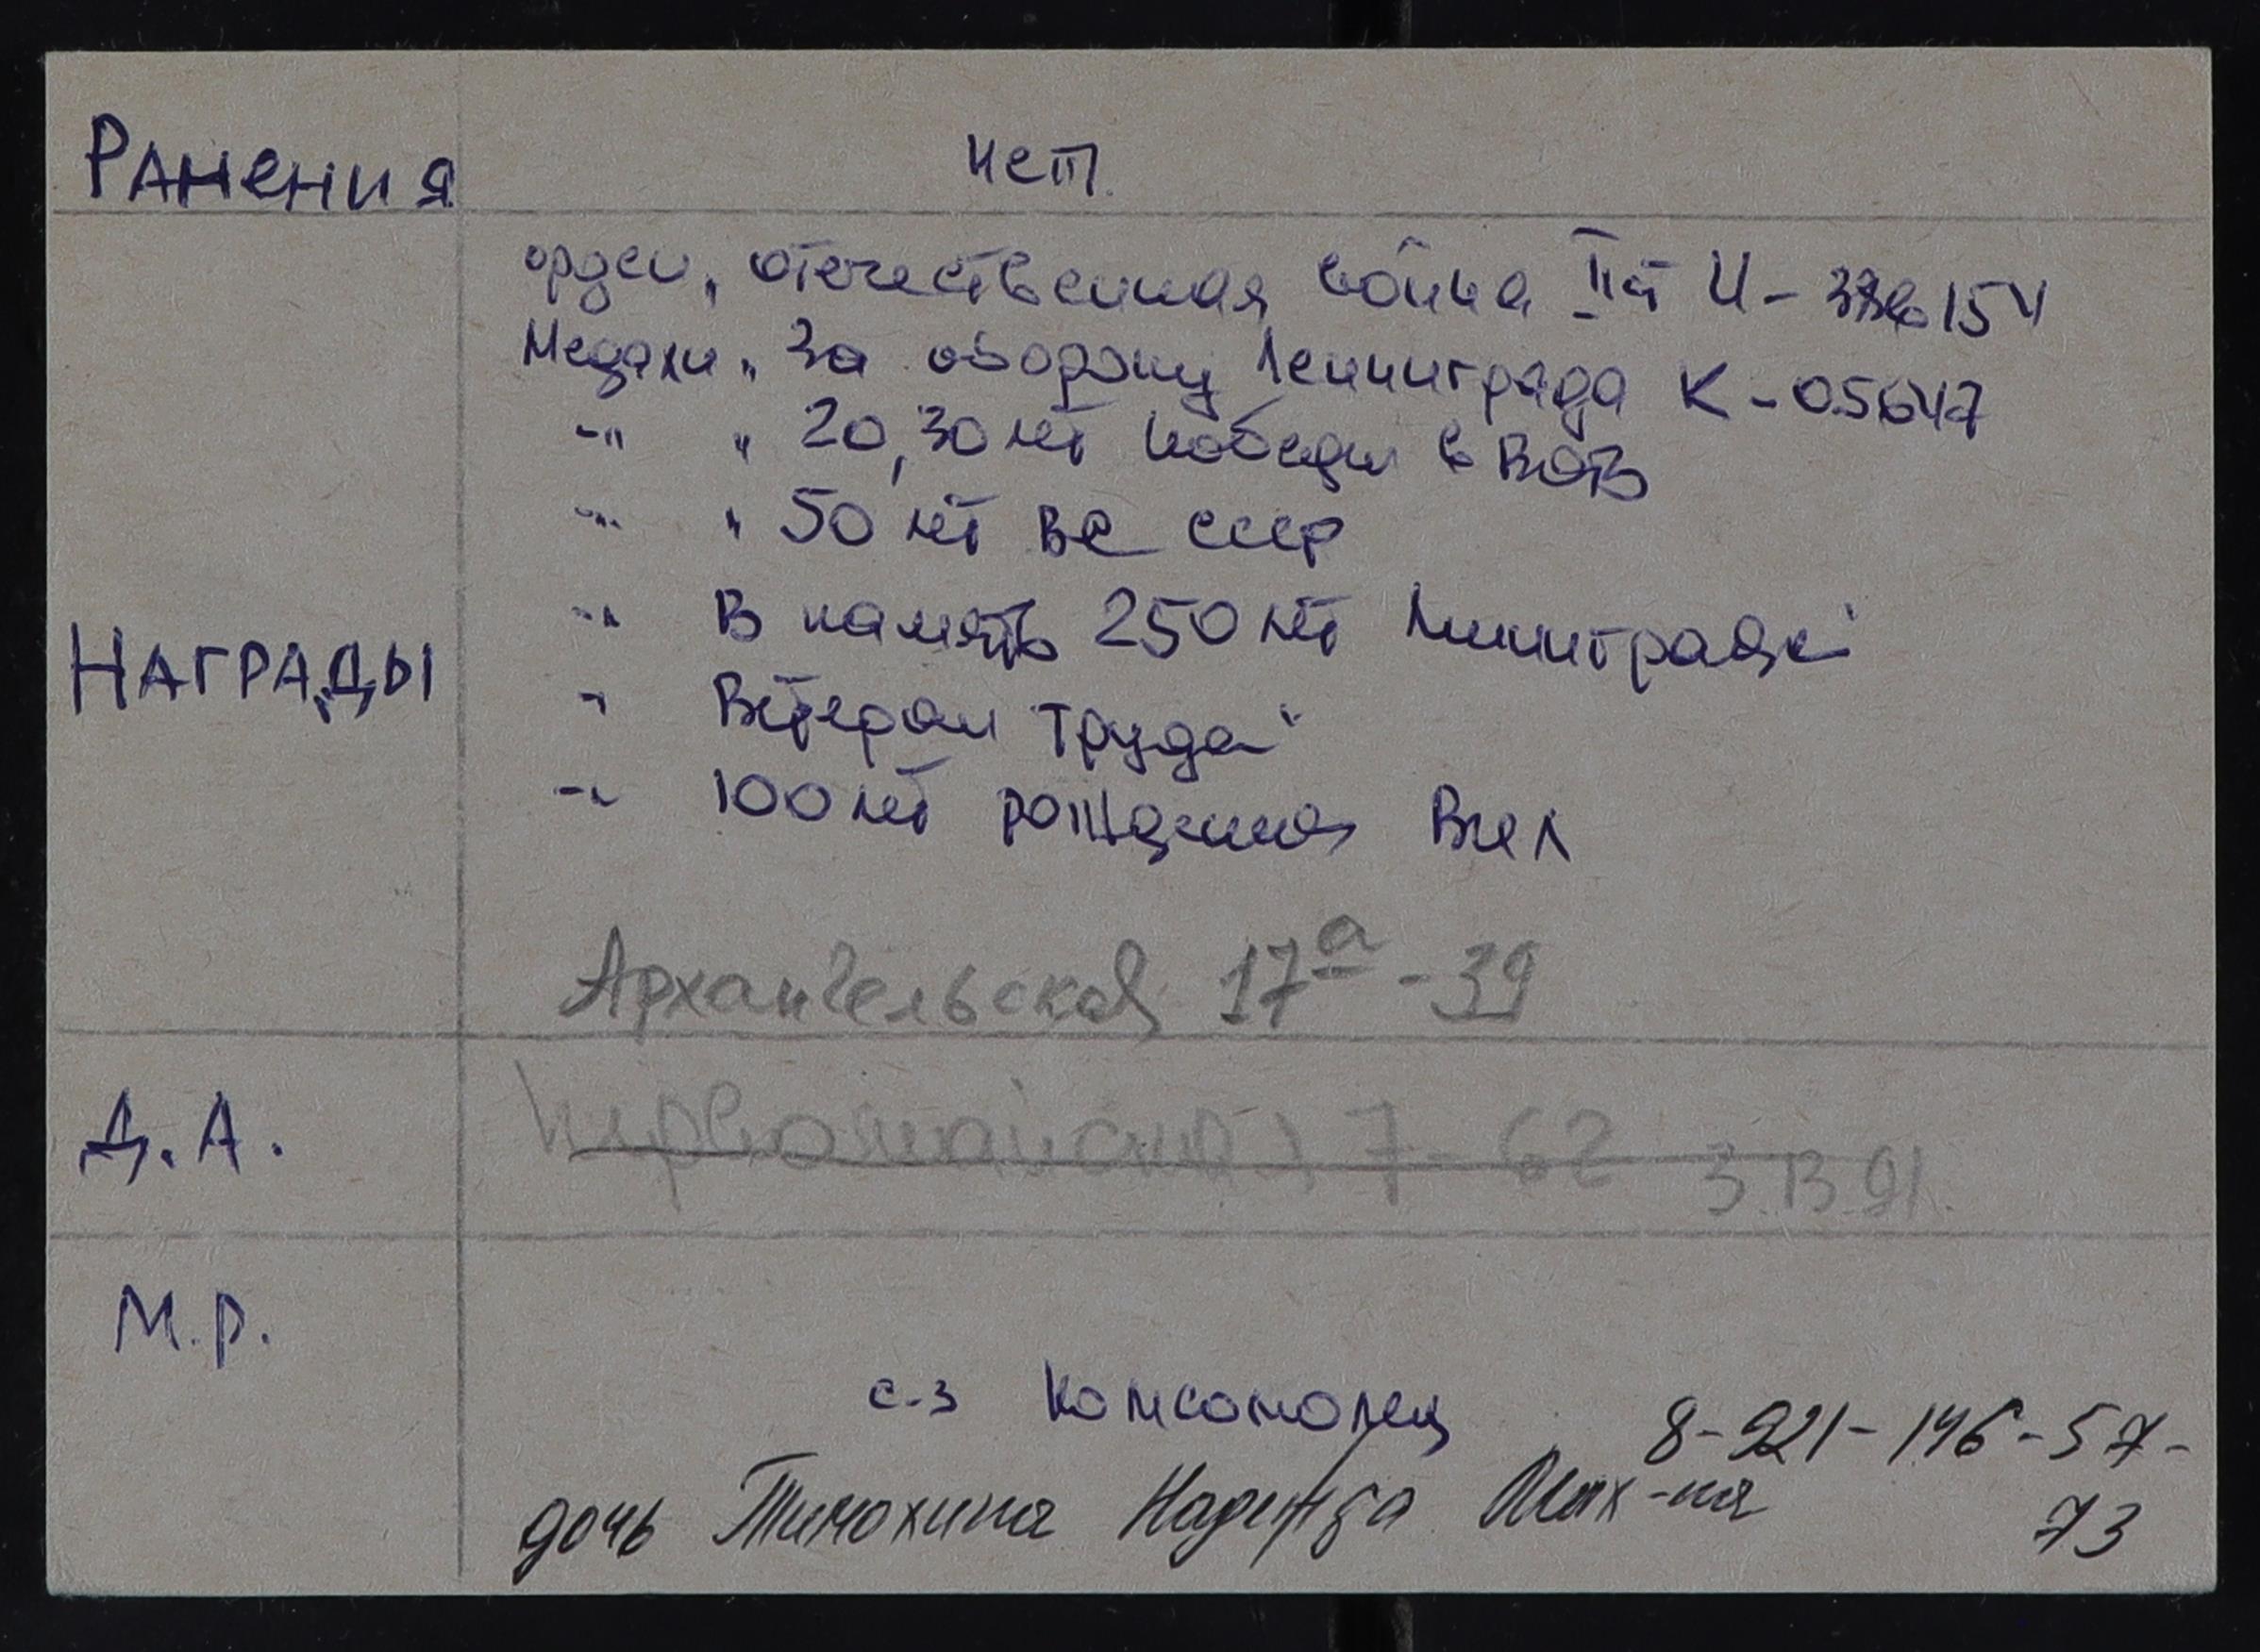 Ранения нет.
орден „Отечественная война II ст И-336154
Медали „За оборону Ленинграда К-05647
-"- „20,30 лет победы в ВОВ
-"- „50 лет ВС СССР
-"- В память 250 лет Ленинграда"
Награды
-"- Ветеран труда"
-"- 100 лет рождения ВИЛ
Архангельская 17а-39
Д.А. Первомайская 7-62 3.13.91.
М.Р.
с-з Комсомолец
8-921-146-57-
дочь Тимохина Надежда Мих-на 73